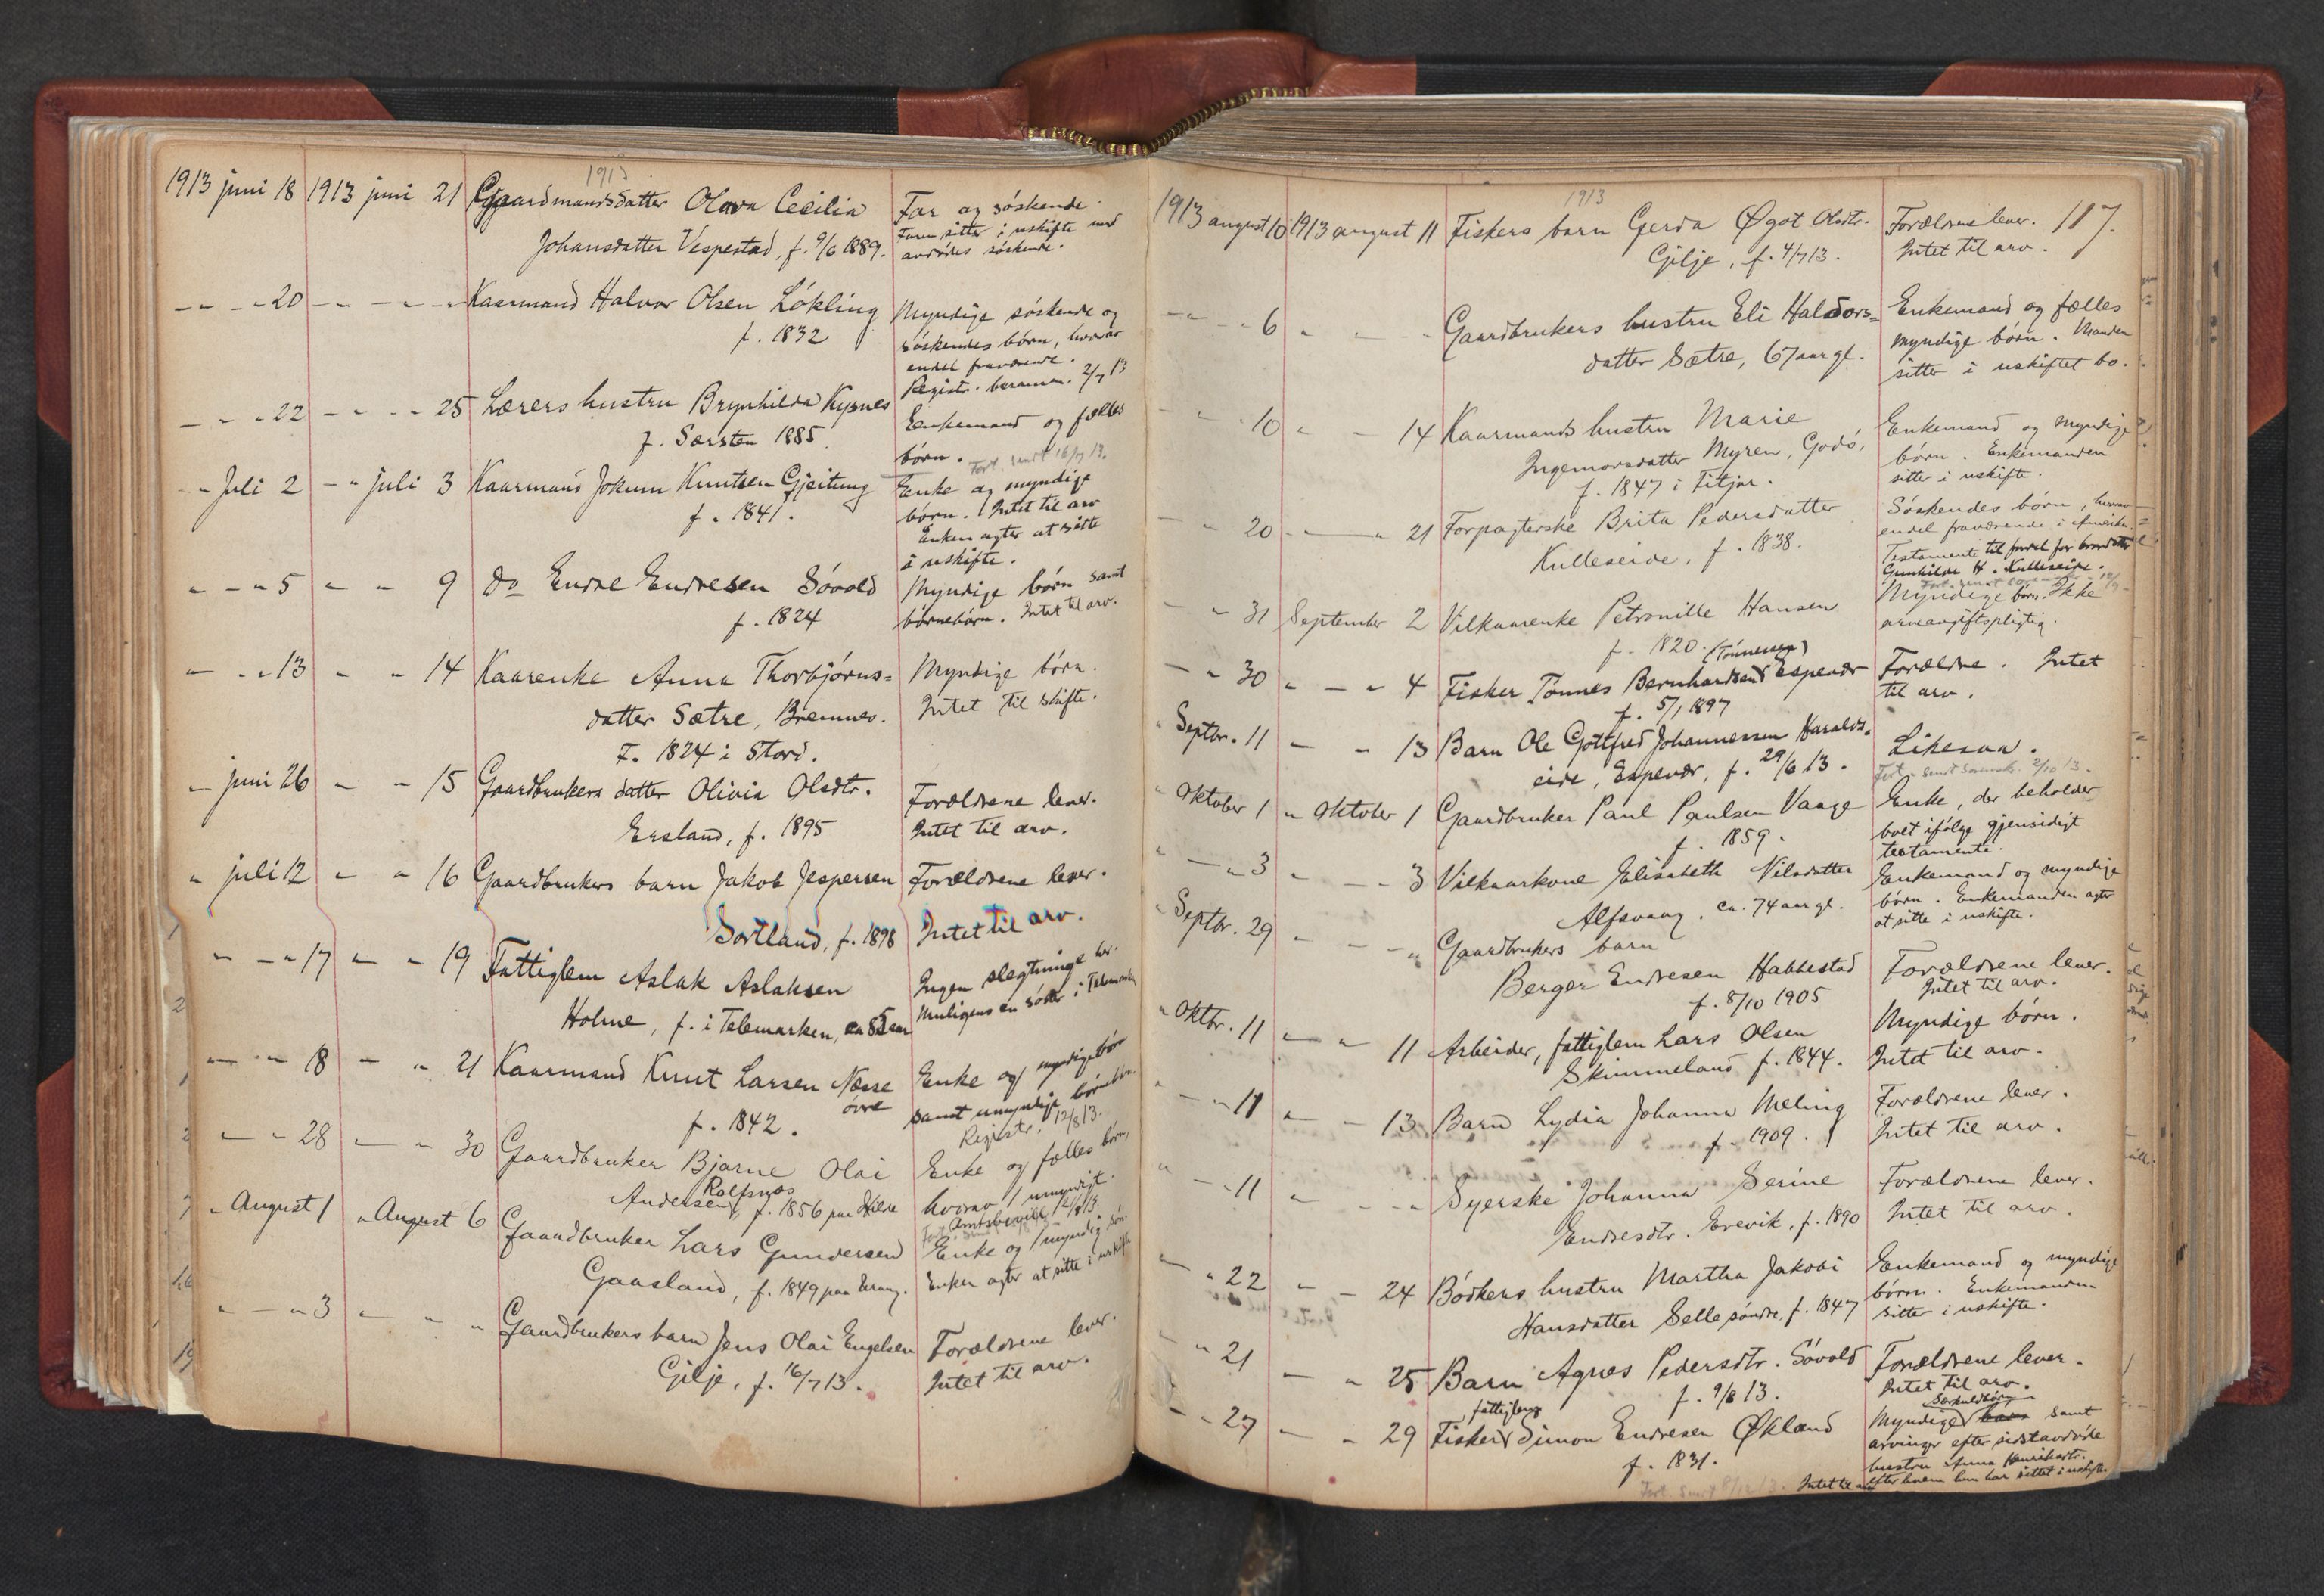 1913
1913 juni 18 1913 juni 21 Gaardmandsdatter Olava Cecilia Far og søskende.
Johansdatter Vespestad, f. 9/6 1889. Faren sitter i uskifte med
avdødes søskende.
— " — " 20 — " — " — " Kaarmand Halvor Olsen Løkling Myndige søskende og
f. 1832 søskendes børn, hvorav
endel fraværende.
Registr. beramm. 2/7 13
— " — " 22 — " — " 25 Lærers hustru Brynhilda Kyrnes Enkemand og fælles
f. Sørsten 1885 børn. Fort. sendt 16/7 13.
— " Juli 2 — " juli 3 Kaarmand Jokum Knutsen Gjeitung Enke og myndige
f. 1841. børn. Intet til arv
Enken agter at sitte
i uskifte.
" — " 5 " — " 9 Do Endre Endresen Søvold Myndige børn samt
f. 1824 børnebørn. Intet til arv.
— " 13 " — " 14 Kaarenke Anna Thorbjørns= Myndige børn.
datter Sætre, Bremnes. Intet til skifte.
F. 1824 i Stord.
— juni 26 " — " 15 Gaardbrukers datter Olivia Olsdtr. Forældrene lever.
Ersland, f. 1895 Intet til arv.
" juli 12 " — " 16 Gaardbrukers barn Jakob Jespersen Forældrene lever.
Sortland, f. 1898 Intet til arv.
" — " 17 " — " 19 Fattiglem Aslak Aslaksen Ingen slegtninge her.
Holme, f. i Telemarken, ca 85 aar Muligens en søster i Telemarken
" — " 18 — " 21 Kaarmand Knut Larsen Næsse Enke og myndige børn
øvre samt umyndige børnebørn.
f. 1842. Registr. 12/8 13.
" — " 28 " — " 30 Gaardbruker Bjarne Olai Enke og fælles børn,
Rolfsnæs
Andersen f. 1856 paa hvorav 1 umyndigt.
Amtsbevill. 12/8 13.
" August 1 " August 6 Gaardbruker Lars Gundersen Enke og 1 myndig søn.
Gaasland, f. 1849 paa Enken agter at sitte i uskifte
" — " 3 " — " " Gaardbrukers barn Jens Olai Engelsen Forældrene lever.
Gilje, f. 16/7 13. Intet til arv.
1913
117.
1913 august 10 1913 august 11 Fiskers barn Gerda Øgot Olsdtr. Forældrene lever.
Gilje, f. 4/7 13. Intet til arv.
— " — " 6 " — " Gaardbrukers hustru Eli Haldors= Enkemand og fælles
datter Sætre, 67 aar gl. myndige børn. Manden
sitter i uskiftet bo.
— " 10 " — 14 Kaarmands hustru Marie Enkemand og myndige
Ingemorsdatter Myren, Godø, børn. Enkemanden
f. 1847 i Fitjar. sitter i uskifte.
— " 20 — " 21 Forpagterske Brita Pedersdatter Søskendes børn, hvorav
Kulleseide, f. 1838. endel fraværende i Amerika.
Testamente til fordel for brordatter
Gunhilde H. Kulleseide.
— " 31 September 2 Vilkaarenke Petronille Hansen Myndige børn. Ikke
f. 1820. arveavgiftspligtig.
(Tønnesen)
— " 30 " — " 4 Fisker Tønnes Bernhardsen Espevær Forældre. Intet
f. 5/1 1897 til arv.
" Septbr. 11 — " 13 Barn Ole Gottfred Johannessen Haralds= Likesaa.
eide, Espevær, f. 29/6 13. Fort. sendt 2/10 13.
" Oktober 1 " Oktober 1 Gaardbruker Paul Paulsen Vaage Enke, der beholder
f. 1859. boet ifølge gjensidigt
testamente.
" — " 3 " — " 3 Vilkaarkone Elisabeth Nilsdatter Enkemand og myndige
Alfsvaag, ca. 74 aar gl. børn. Enkemanden agter
at sitte i uskifte.
" Septbr. 29 " — " Gaardbrukers barn
Berger Endresen Habbestad Forældrene lever.
f. 8/10 1905 Intet til arv.
" Oktbr. 11 " — " 11 Arbeider, fattiglem Lars Olsen Myndige børn.
Skimmeland f. 1844. Intet til arv.
" — " 11 " — 13 Barn Lydia Johanna Meling Forældrene lever.
f. 1909. Intet til arv.
" — " 11 " — " Syerske Johanna Serine Forældrene lever.
Endresdtr. Erevik, f. 1890 Intet til arv.
— " 22 " — 24 Bødkers hustru Martha Jakobi Enkemand og myndige
Hansdatter Selle søndre, f. 1847 børn. Enkemanden
sitter i uskifte.
— " 21 — " 25 Barn Agnes Pedersdtr. Søvold Forældrene lever.
f. 9/8 13. Intet til arv.
fattiglem Særkuldbørn
— " 27 — " 29 Fisker Simon Endresen Økland Myndige samt
f. 1831. arvinger efter sidstavdøde
hustru Anna Henriksdtr.
Intet til arv efter hvem han har sittet i uskifte.